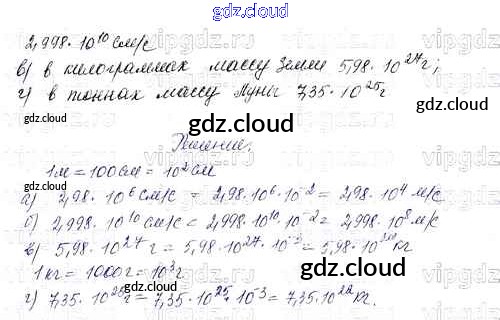 gdz.cloud
2,998·10¹⁰ см/с
в) в килограммах массу Земли 5,98·10²⁷ г;
г) в тоннах массу Луны 7,35·10²⁵ г
gdz.cloud
Решение.
1м = 100см = 10² см
а) 2,98·10⁶ см/с = 2,98·10⁶·10⁻² = 2,98·10⁴ м/с
б) 2,998·10¹⁰ см/с = 2,998·10¹⁰·10⁻² = 2,998·10⁸ м/с
в) 5,98·10²⁷ г = 5,98·10²⁷·10⁻³ = 5,98· кг
gdz.cloud
1 кг = 1000г = 10³ г
г) 7,35·10²⁵ г = 7,35·10²⁵·10⁻³ = 7,35·10²² кг.
gdz.cloud